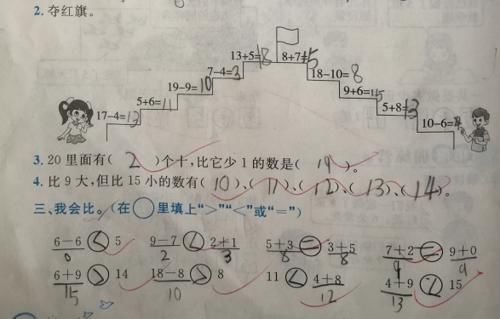 2. 夺红旗。
13+5=18 8+7=15
7-4=3 18-10=8
19-9=10 9+6=15
5+6=11 5+8=13
17-4=13 10-6=4
3. 20里面有( 2 )个十,比它少1的数是( 19 )。
4. 比9大,但比15小的数有(10)、(11)、(12)、(13)、(14)。
三、我会比。(在○里填上“>”“<”或“=”)
6-6 < 5 9-7 < 2+1 5+3 = 3+5 7+2 = 9+0
0 2 3 8 8 9 9
6+9 > 14 18-8 > 8 11 < 4+8 4+9 15
15 10 12 13